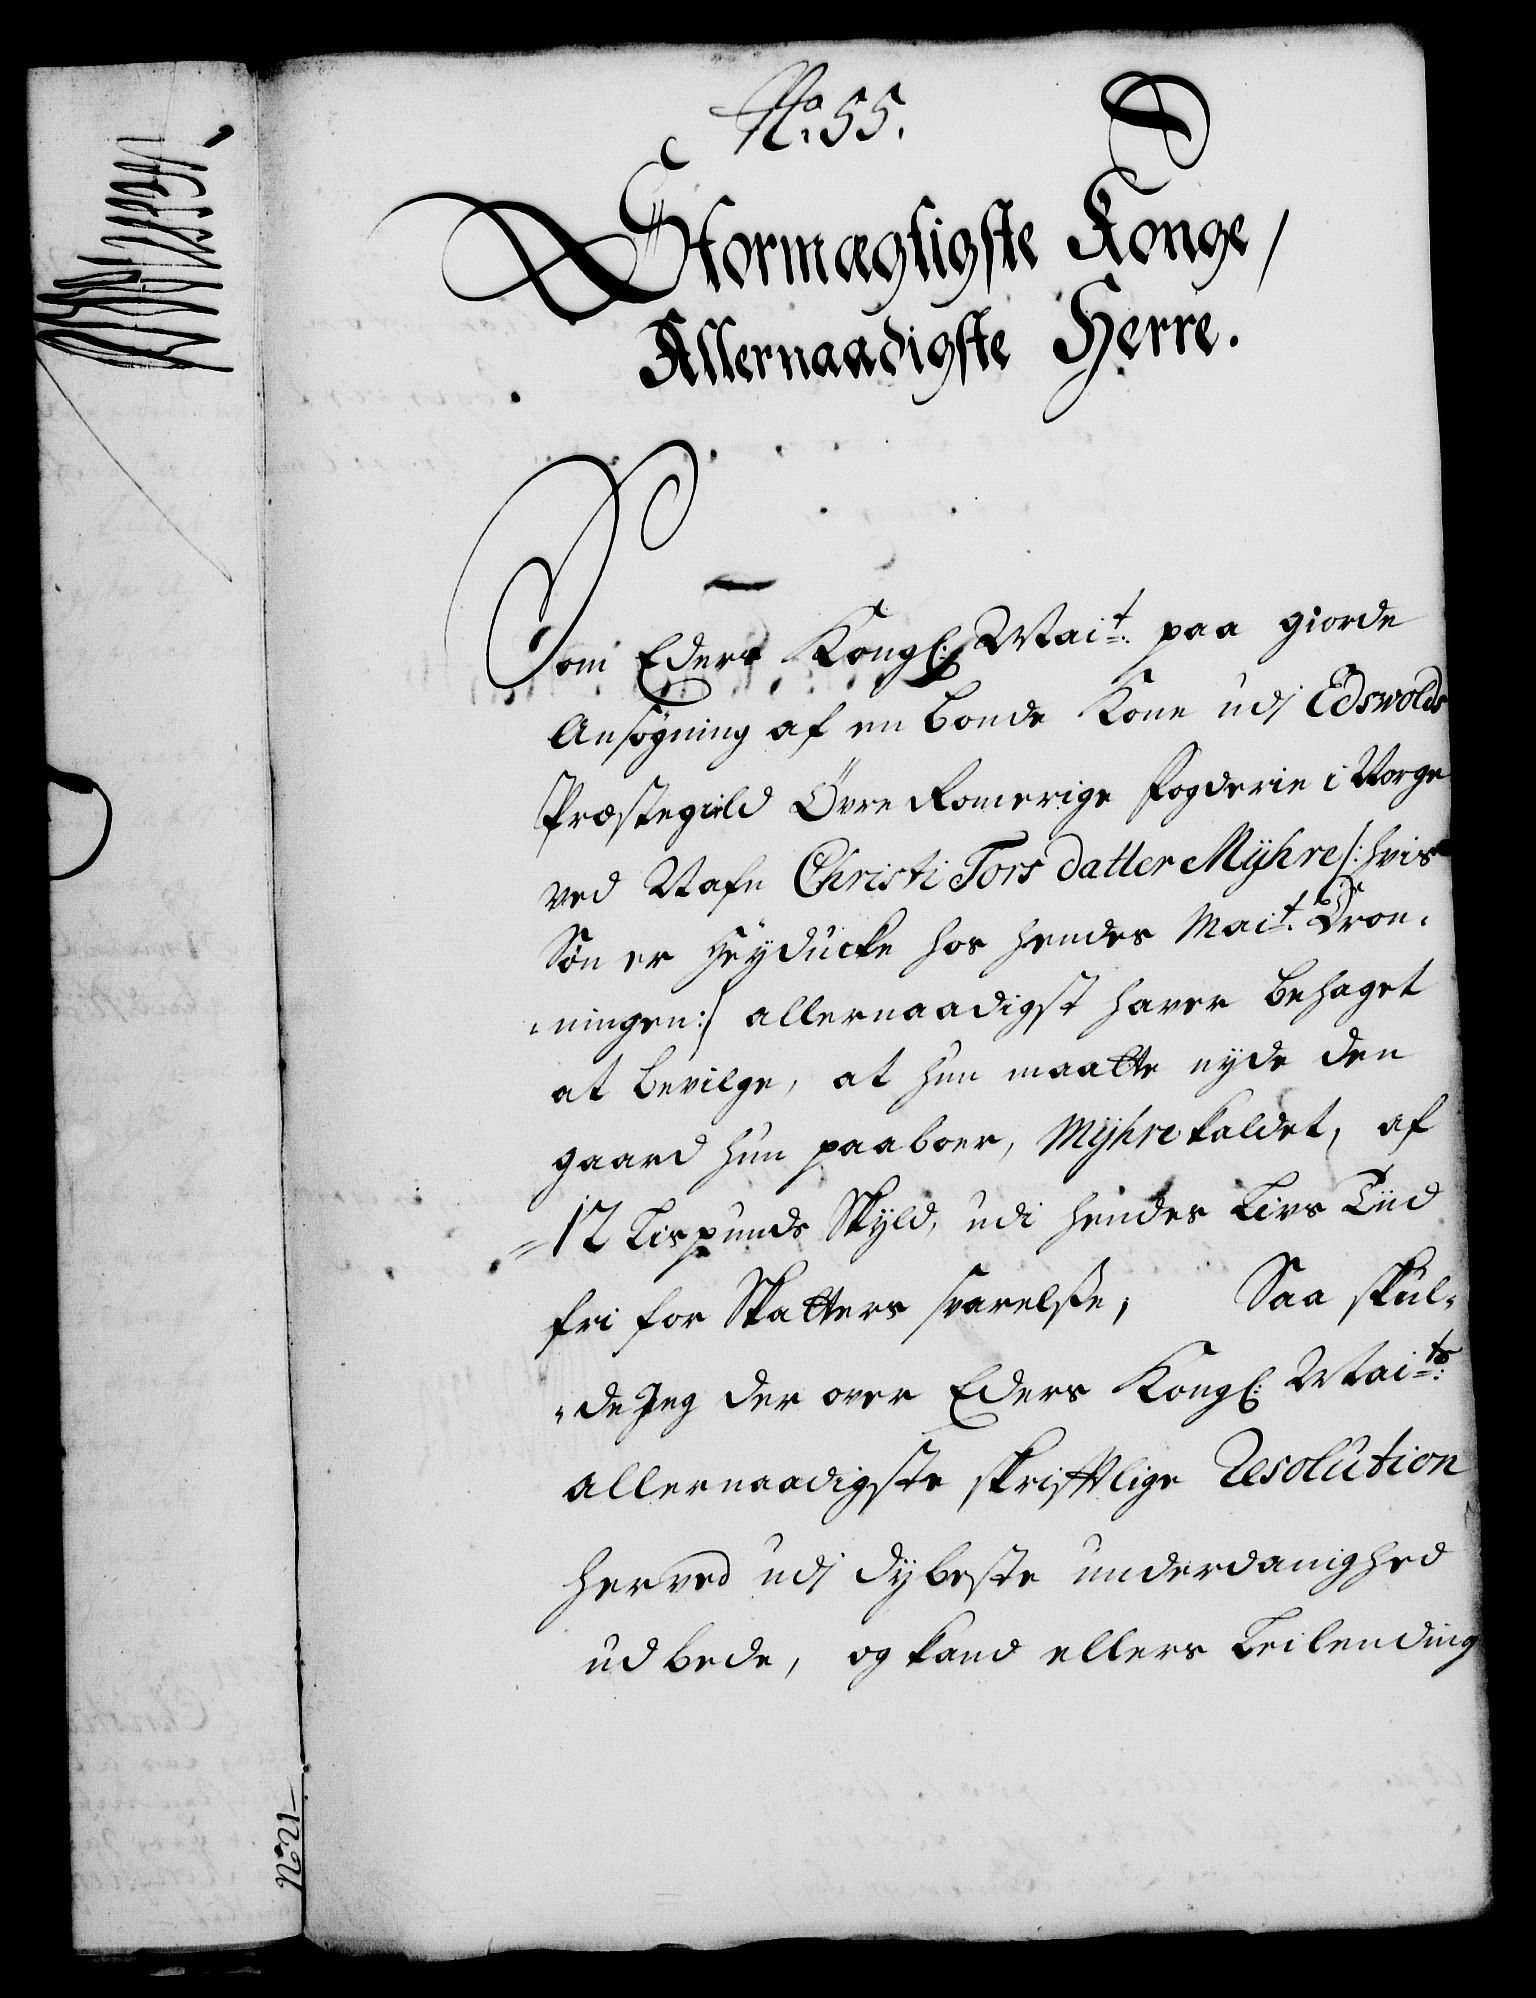 No. 55.
Stormægtigste Konge/
Allernaadigste Herre.
Som Eders Kongl: Mait: paa giorde
Ansøgning af en bonde Kone udj Edswolds
Præstegield Övre Romerige fogderie i Norge
ved Nafn Christi Tors datter Myhre /: hvis
Søn er Heyducke hos hendes Mait. Dron,
,ningen :/ allernaadigst haver behaget
at bevilge, at hun maatte nyde den
gaard hun paaboer, Myhre kaldet, af
12 Lispunds Skyld, udi hendes Livs Tiid
fri for Skatters svarelße, Saa skul,
,de Jeg der over Eders Kongl: Maits:
allernaadigste skrifftlige Resolution
herved udj dybeste underdanighed
udbede, og kand ellers Leilending
No. 21